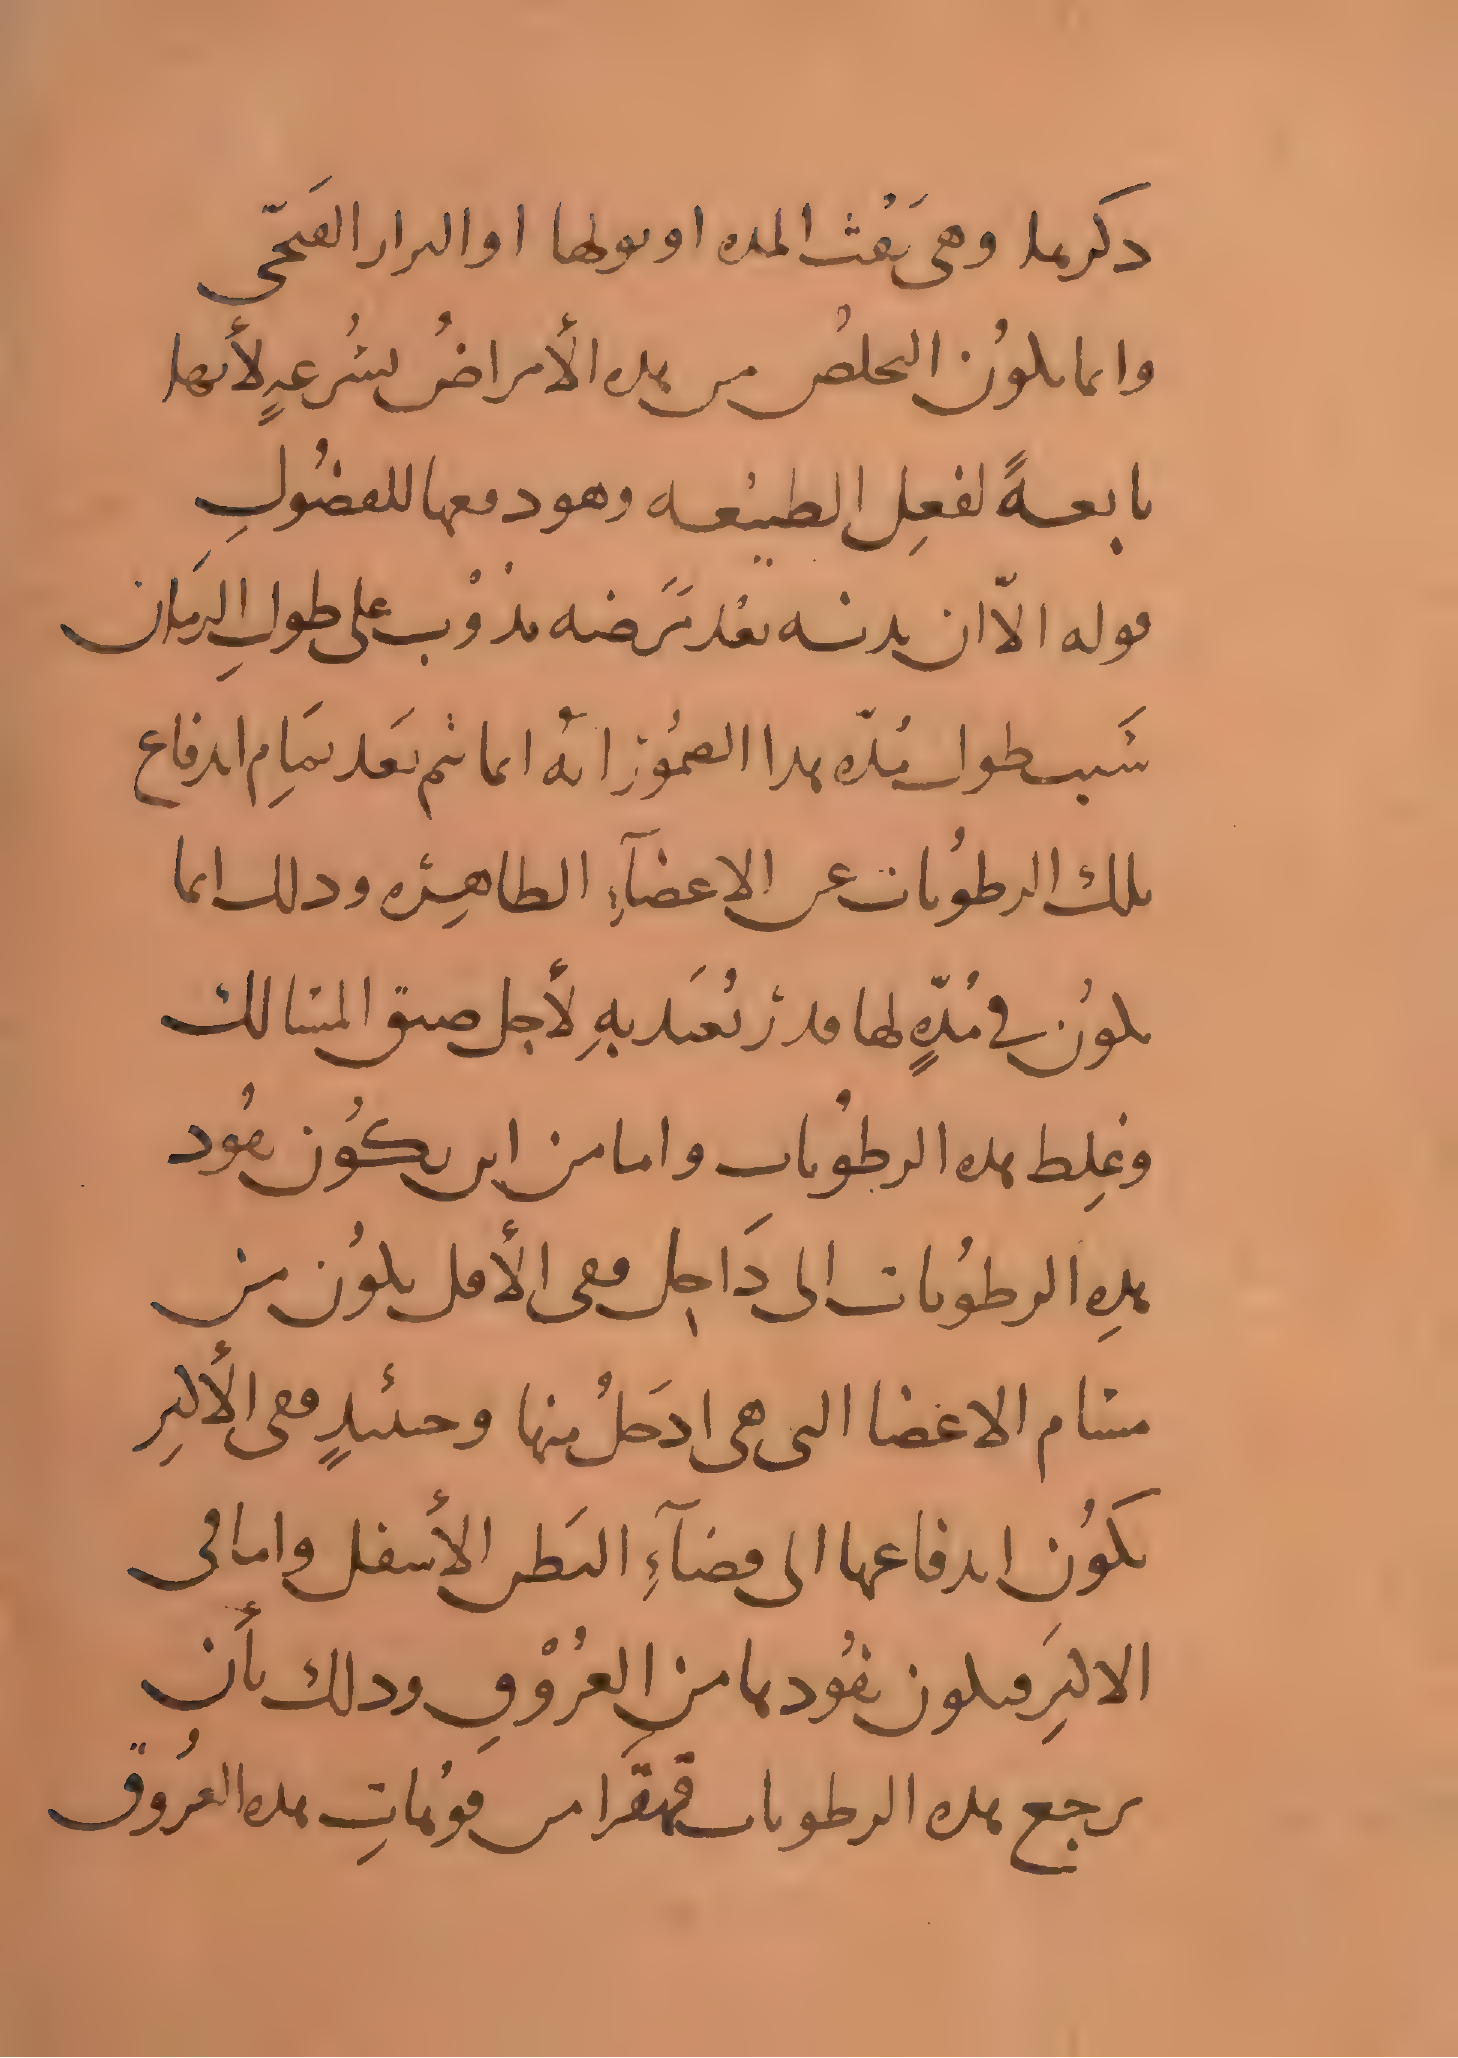 ذكرها وهى نَفْث المده او بولها او البراز القَيحىّ
وانما يكون التخلصُ من هذه الأمراضُ بسُرعةٍ لأنها
تابعةً لفعلِ الطبيعه وهو دفعها للفضُولِ
قوله الاّ ان بدنه بعْد مَرَضه يذُوْب على طولِ الزمَان
سَبب طول مُدّه هذا الضمُوْر انه انما يتم بَعد تمَامِ اندفاع
تلك الرطُوبات عن الاعضآءِ الظاهِره وذلك انما
يكوُن فى مُدّةٍ لها قدرْ يُعتَد بهِ لأجل ضيق المسَالك
وغِلظ هذه الرطُوبات واما من اين يكُون نفُوذ
هذِه الرطُوبات الى دَاخِل ففى الأقل يكوُن من
مسَام الاعْضا التى هى ادخَلُ منها وحينئذٍ ففى الأكثرِ
يكُون اندفاعها الى فضآءِ البَطن الأسفل واما فى
الاكثَرِ فيكون نفُوذها من العُرُوْقِ وذلك بأن
يرجع هذه الرطوبات قهقَرا من فوُهاتِ هذه العُروق